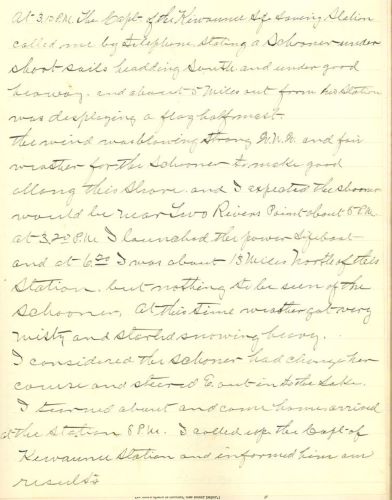 At 3,10 P.M. The Capt- of the Kewaunee Lf Saving Station
called me by telephone stating a Schooner under
short sails headding South and under good
heaway. and about 5 Miles out from his Station
was desplaying a flag halfmast.
the wind was blowing strong N.N.W. and fair
weather for the Schooner to make good
allong this Shore. and I expeted the shooner
would be near Two Rivers Point about 5 P.M.
at 3,20 P.M. I launched the power lifeboat
and at 6.20 I was about 13 Miles North of this
Station. but nothing to be seen of the
Schooner, At this time weather got very
misty and started snowing heavy.
I considered the Schoner had change her
course and steered E. out in to the Lake.
I turned about and come home arrived
at the Station 8 P.M. I called up the Capt- of
Kewaunee Station and informed him our
results